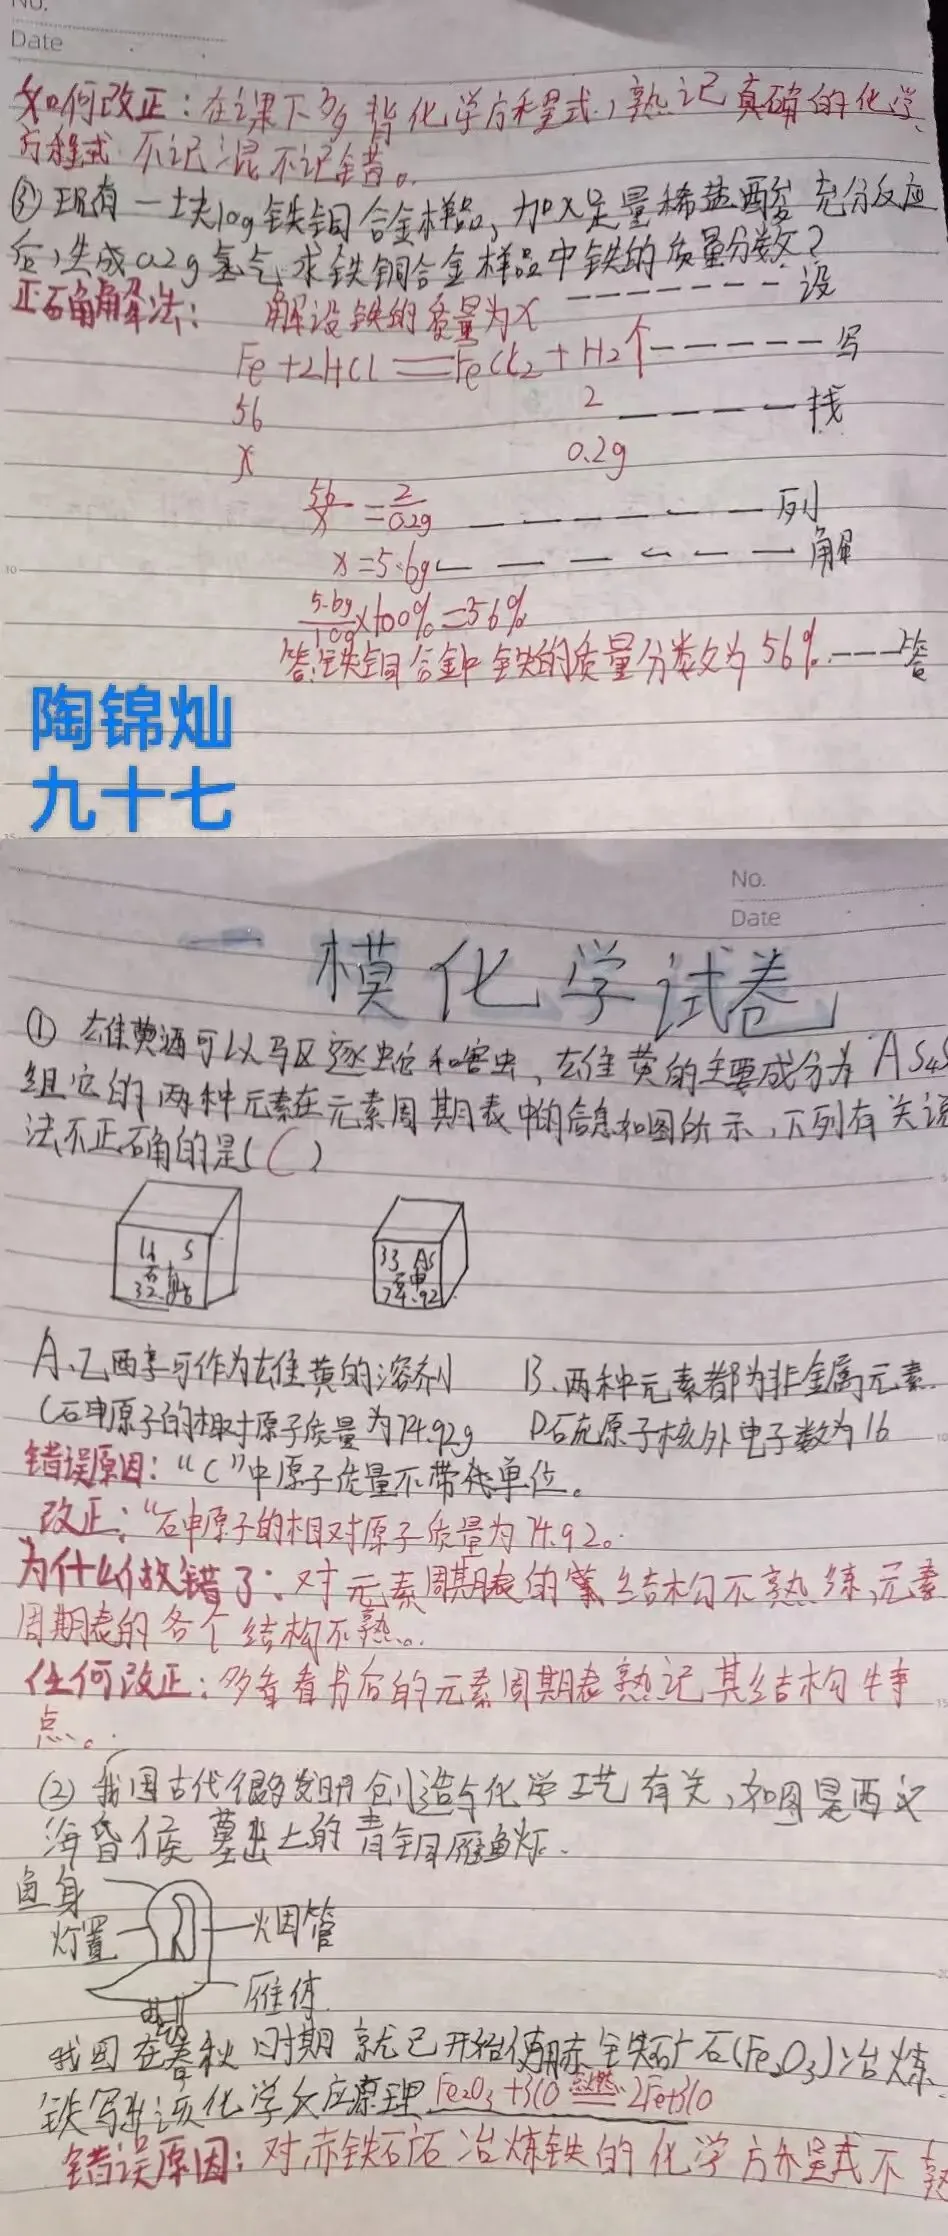 No.
Date
如何改正：在课下多背化学方程式，熟记真确的化学
方程式 不记混不记错。
③现有一块10g铁铜合金样品，加入足量稀盐酸充分反应
后，生成0.2g氢气，求铁铜合金样品中铁的质量分数？
正确解法： 解设铁的质量为x ------- 设
Fe+2HCl══FeCl2+H2↑------ 写
56 2 ----- 找
x 0.2g
56/x=2/0.2g ------ 列
x=5.6g ------ 解
5.6g/10g×100%=56%
答：铁铜合金中铁的质量分数为56%.---答
陶锦灿
九十七
No.
Date
一模化学试卷
① 雄黄酒可以驱逐蛇和害虫，雄黄的主要成分为AS4S
组它的两种元素在元素周期表中的信息如图所示，下列有关说
法不正确的是(C)
16 S
32.06
33 AS
砷
74.92
A、乙醇可作为雄黄的溶剂 B、两种元素都为非金属元素.
C砷原子的相对原子质量为74.92g D硫原子核外电子数为16
错误原因：“C”中原子质量不带单位。
改正：“砷原子的相对原子质量为74.92。
为什么做错了：对元素周期表的结构不熟练，元素
周期表的各个结构不熟。
任何改正：多看看书后的元素周期表熟记其结构特
点。
(2) 我国古代很多发明创造与化学工艺有关，如图是西汉
海昏侯墓出土的青铜雁鱼灯.
鱼身
灯罩
烟管
雁体
我国在春秋时期就已开始使用赤铁矿石(Fe2O3)冶炼
铁写出该化学反应原理Fe2O3+3CO 高温 2Fe+3CO
错误原因：对赤铁矿石冶炼铁的化学方程式不熟